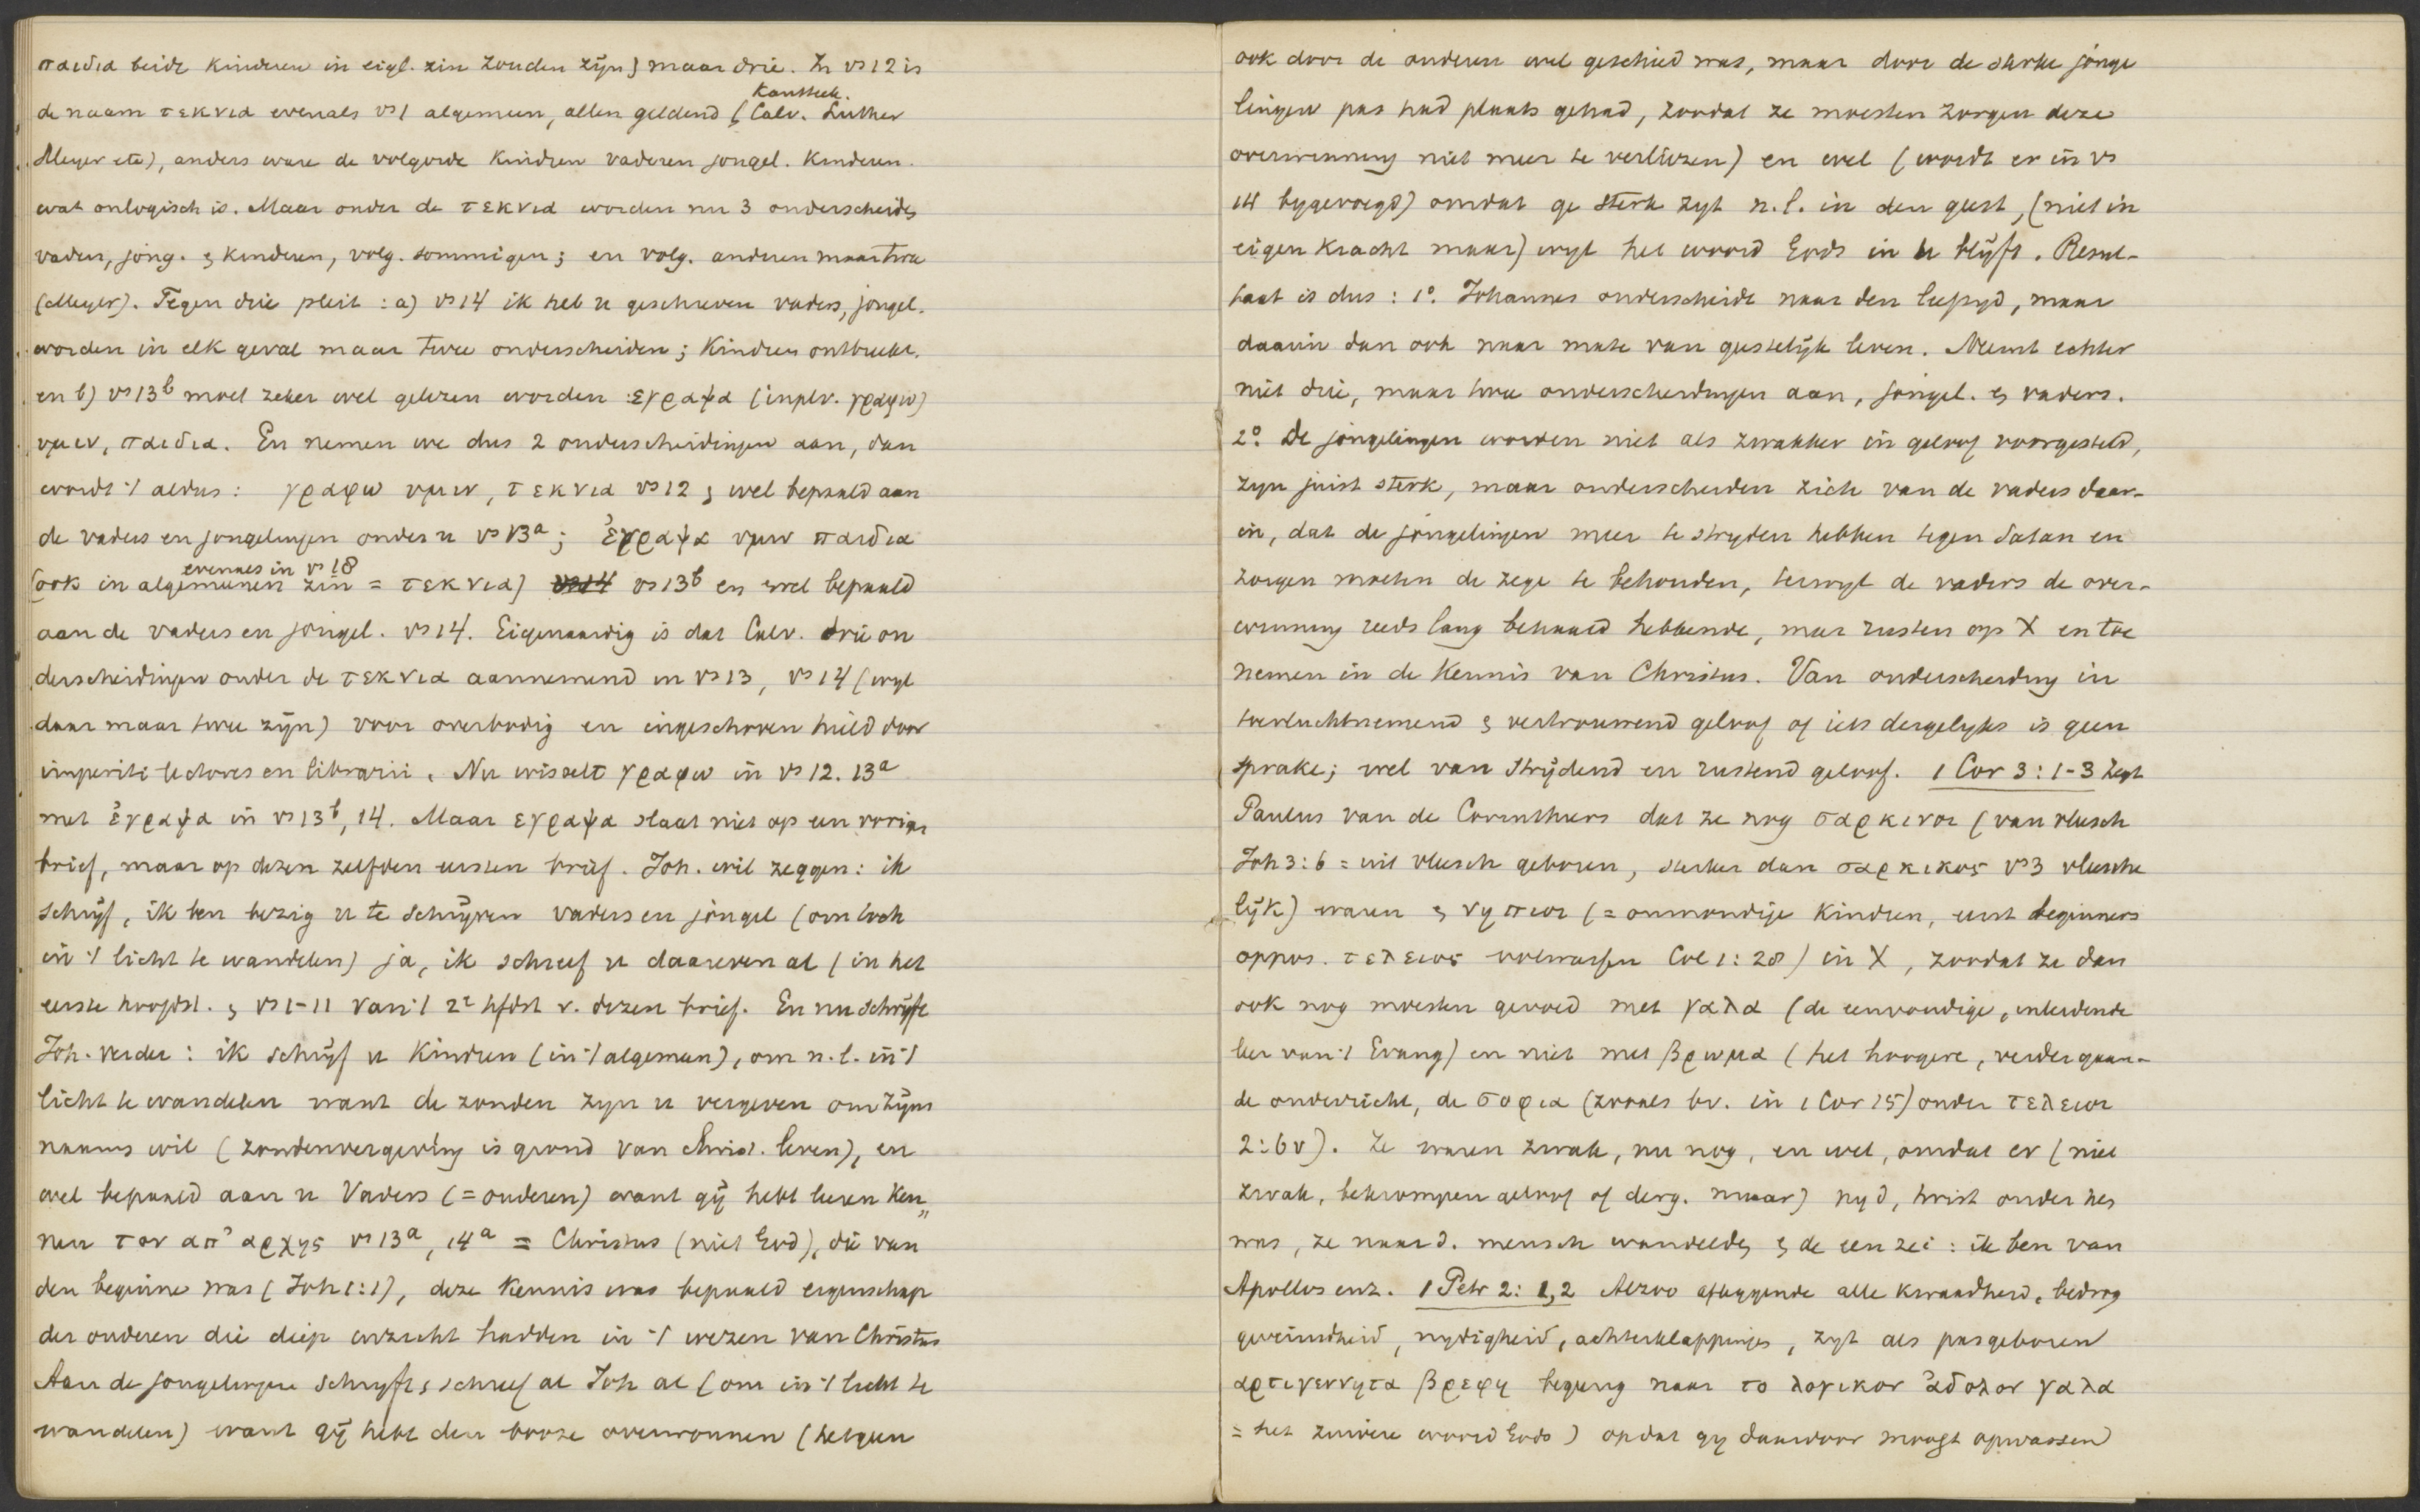 παιδια beide kinderen in eigl. zin zouden zijn) maar drie. In vs 12 is
Kanttek.
de naam τεκνια evenals vs 1 algemeen, allen geldend (Calv. Luther
Meyer etc), anders ware de volgorde kindren vaderen jongel. kinderen.
wat onlogisch is. Maar onder de τεκνια worden nu 3 onderscheiden
vaders, jong. & kinderen, volg. sommigen; en volg. anderen maar twee
(Meyer). Tegen drie pleit: a) vs 14 ik heb u geschreven vaders, jongel.
worden in elk geval maar twee onderscheiden; Kindren ontbreekt.
en b) vs 13b moet zeker wel gelezen worden: εγραψα (inplv. γραφω)
υμιν, παιδια. En nemen we dus 2 onderscheidingen aan, dan
wordt 't aldus: γραφω υμιν, τεκνια vs 12 & wel bepaald aan
de vaders en jongelingen onder u vs 13a; ἐγραψα υμιν παιδια
evenals in vs 18
(ook in algemeenen zin = τεκνια) vs 14 vs 13b en wel bepaald
aan de vaders en jongel. vs 14. Eigenaardig is dat Calv. drie on
derscheidingen onder de τεκνια aannemend in vs 13, vs 14 (wyl
daar maar twee zijn) voor overbodig en ingeschoven hield door
imperiti lectores en librarii. Nu wisselt γραφω in vs 12. 13a
met ἐγραψα in vs 13b, 14. Maar εγραψα slaat niet op een vorigen
brief, maar op dezen zelfden eersten brief. Joh. wil zeggen: ik
schrijf, ik ben bezig u te schrijven vaders en jongel (om toch
in 't licht te wandelen) ja, ik schreef u daareven al (in het
eerste hoofdst. & vs 1-11 van 't 2e hfdst v. dezen brief. En nu schrijft
Joh. verder: ik schrijf u Kindren (in 't algemeen), om n.l. in 't
licht te wandelen want de zonden zyn u vergeven om zijns
naams wil (zondenvergeving is grond van Christ. leven), en
wel bepaald aan u Vaders (= ouderen) want gij hebt leeren ken„
nen τον απ' αρχης vs 13a, 14a = Christus (niet God), die van
den beginne was (Joh 1:1), deze kennis was bepaald eigenschap
der ouderen die diep inzicht hadden in 't wezen van Christus
Aan de jongelingen schryft & schreef al Joh al (om in 't licht te
wandelen) want gij hebt den booze overwonnen (hetgeen
ook door de ouderen wel geschied was, maar door de sterke jonge
lingen pas had plaats gehad, zoodat ze moesten zorgen deze
overwinning niet meer te verliezen) en wel (wordt er in vs
14 bygevoegd) omdat ge sterk zyt n.l. in den geest, (niet in
eigen kracht maar) wyl het woord Gods in u blijft. Resul-
taat is dus: 1o. Johannes onderscheidt naar den leeftyd, maar
daarin dan ook naar mate van geestelijk leven. Neemt echter
niet drie, maar twee onderscheidingen aan, jongel. & vaders.
2o. De jongelingen worden niet als zwakker in geloof voorgesteld,
zyn juist sterk, maar onderscheiden zich van de vaders daar-
in, dat de jongelingen meer te stryden hebben tegen Satan en
zorgen moeten de zege te behouden, terwyl de vaders de over-
winning reeds lang behaald hebbende, meer rusten op X en toe
nemen in de kennis van Christus. Van onderscheiding in
toevluchtnemend & vertrouwend geloof of iets dergelyks is geen
sprake; wel van strijdend en rustend geloof. 1 Cor 3: 1-3 zegt
Paulus van de Corinthiers dat ze nog σαρκινοι (van vleesch
Joh 3:6 = uit vleesch geboren, sterker dan σαρκικος vs 3 vleesche
lijk) waren & νηπιοι (= onmondige kindren, eerst beginners
oppos. τελειος volwassen Col 1:28) in X, zoodat ze dan
ook nog moesten gevoed met γαλα (de eenvoudige, inleidende
leer van 't Evang) en niet met βρωμα (het hoogere, verder gaan-
de onderricht, de σοφια (zooals bv. in 1 Cor 15) onder τελειοι
2:6 v). Ze waren zwak, nu nog, en wel, omdat er (niet
zwak, bekrompen geloof of derg. maar) nyd, twist onder hen
was, ze naar d. mensch wandelden & de een zei: ik ben van
Apollos enz. 1 Petr 2: 1,2 Alzoo afleggende alle kwaadheid, bedrog
geveinsdheid, nydigheid, achterklappinge, zyt als pasgeboren
αρτιγεννητα βρεφη begerig naar το λογικον ἀδολον γαλα
= het zuivere woord Gods) opdat gy daardoor moogt opwassen